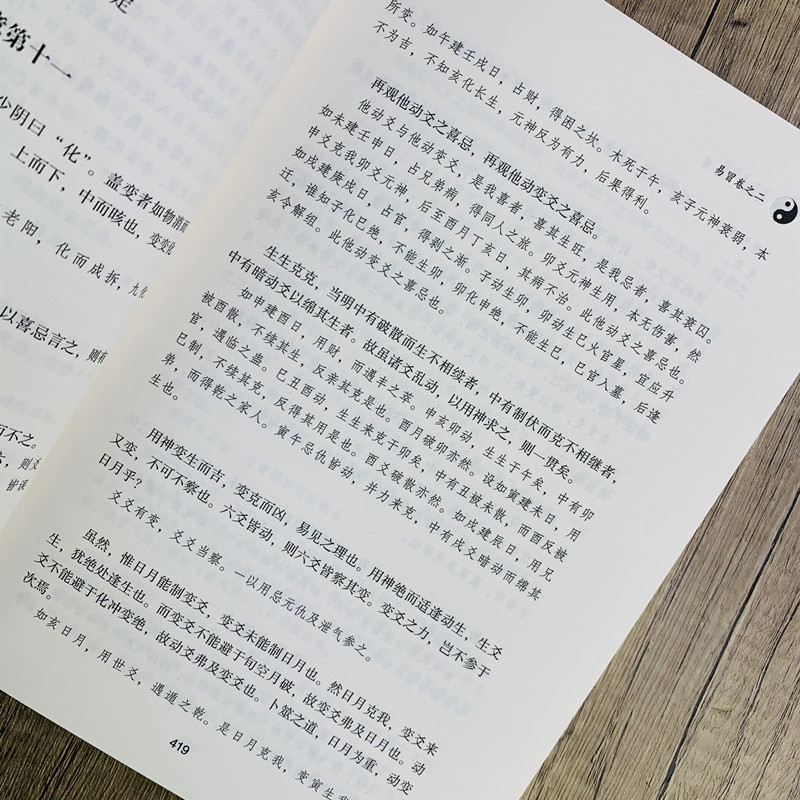 章第十一
少阴曰“化”。盖变者如物消而
上而下，中而晐也，变
老阳，化而成拆，九
以喜忌言之，则
而不之。
易冒卷之二
所变。如午建壬戌日，占财，得困之坎。木死于午，亥子元神衰弱，本
不为吉，不知亥化长生，元神反为有力，后果得利。
再观他动爻之喜忌，再观他动变爻之喜忌。
他动爻与他动变爻，是我喜者，喜其生旺，是我忌者，喜其衰囚。
如未建壬申日，占兄弟病，得同人之旅。卯爻元神生用，本无伤害，然
申爻克我卯爻元神，后至酉月丁亥日，其病不治。此他动爻之喜忌也。
如戌建庚戌日，占官，得剥之渐。子动生卯，卯动生巳火官星，宜应升
迁，谁知子化巳绝，不能生卯，卯化申绝，不能生巳，巳官入墓，后逢
亥令解组。此他动变爻之喜忌也。
生生克克，当明中有破散而生不相续者，中有制伏而克不相继者，
中有暗动爻以绵其生者。故虽诸爻乱动，以用神求之，则一贯矣。
如申建酉日，用财，而遇丰之萃。申亥卯动，生生于午矣，中有卯
被酉散，不续其生，反亲其克是也。酉月破卯亦然。设如寅建未日，用
官，遇临之蛊。巳丑酉动，生生来克于卯矣，中有丑被未散，而酉反被
巳制，不续其克，反得其用是也。酉爻破散亦然。如戌建辰日，用兄
弟，而得乾之家人。寅午忌仇皆动，并力来克，中有戌爻暗动而绵其
生也。
用神变生而吉，变克而凶，易见之理也。用神绝而适逢动生，生爻
又变，不可不察也。六爻皆动，则六爻皆察其变。变爻之力，岂不参于
日月乎？
爻爻有变，爻爻当察。一以用忌元仇及泄气参之。
虽然，惟日月能制变爻，变爻未能制日月也。然日月克我，变爻来
生，犹绝处逢生也。而变爻不能避于旬空月破，故变爻弗及日月也。动
爻不能避于化冲变绝，故动爻弗及变爻也。卜筮之道，日月为重，动变
次焉。
如亥日月，用世爻，遇遁之乾。是日月克我，变寅生
419